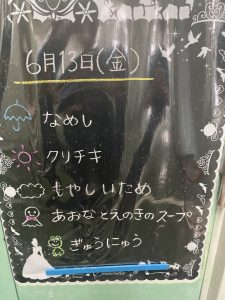 6月13日(金)
なめし
クリチキ
もやしいため
あおなとえのきのスープ
ぎゅうにゅう